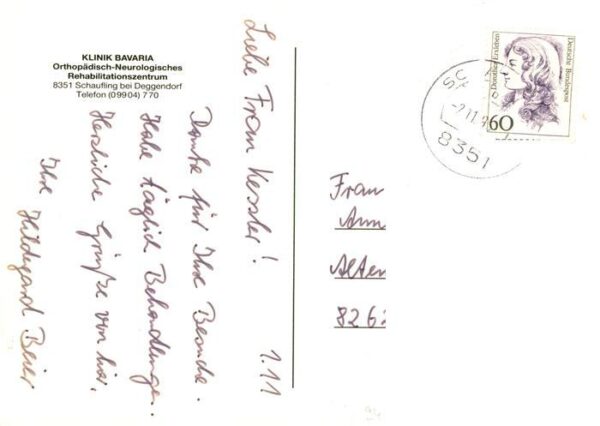 KLINIK BAVARIA
Orthopädisch-Neurologisches
Rehabilitationszentrum
8351 Schaufling bei Deggendorf
Telefon (09904) 770
1.11
Liebe Frau Kessler!
Danke für Ihre Besuche.
Habe täglich Behandlungen.
Herzliche Grüße von hier,
Ihre Hildegard Beier
Dorothea Erxleben
Deutsche Bundespost
60
8351
Frau
Ann
Alten
826